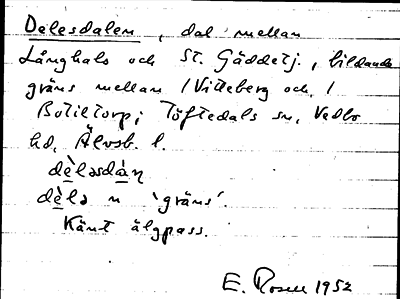 Delesdalen, dal mellan
Långhals och St. Gäddetj., bildande
gräns mellan / Vitteberg och /
Boteltorp; Töftedals sn, Vedbo
hd, Älvsb. l.
dὲləsdὰn̥
dὲlə n 'gräns'.
Känt älgpass.
E. Rosen 1952